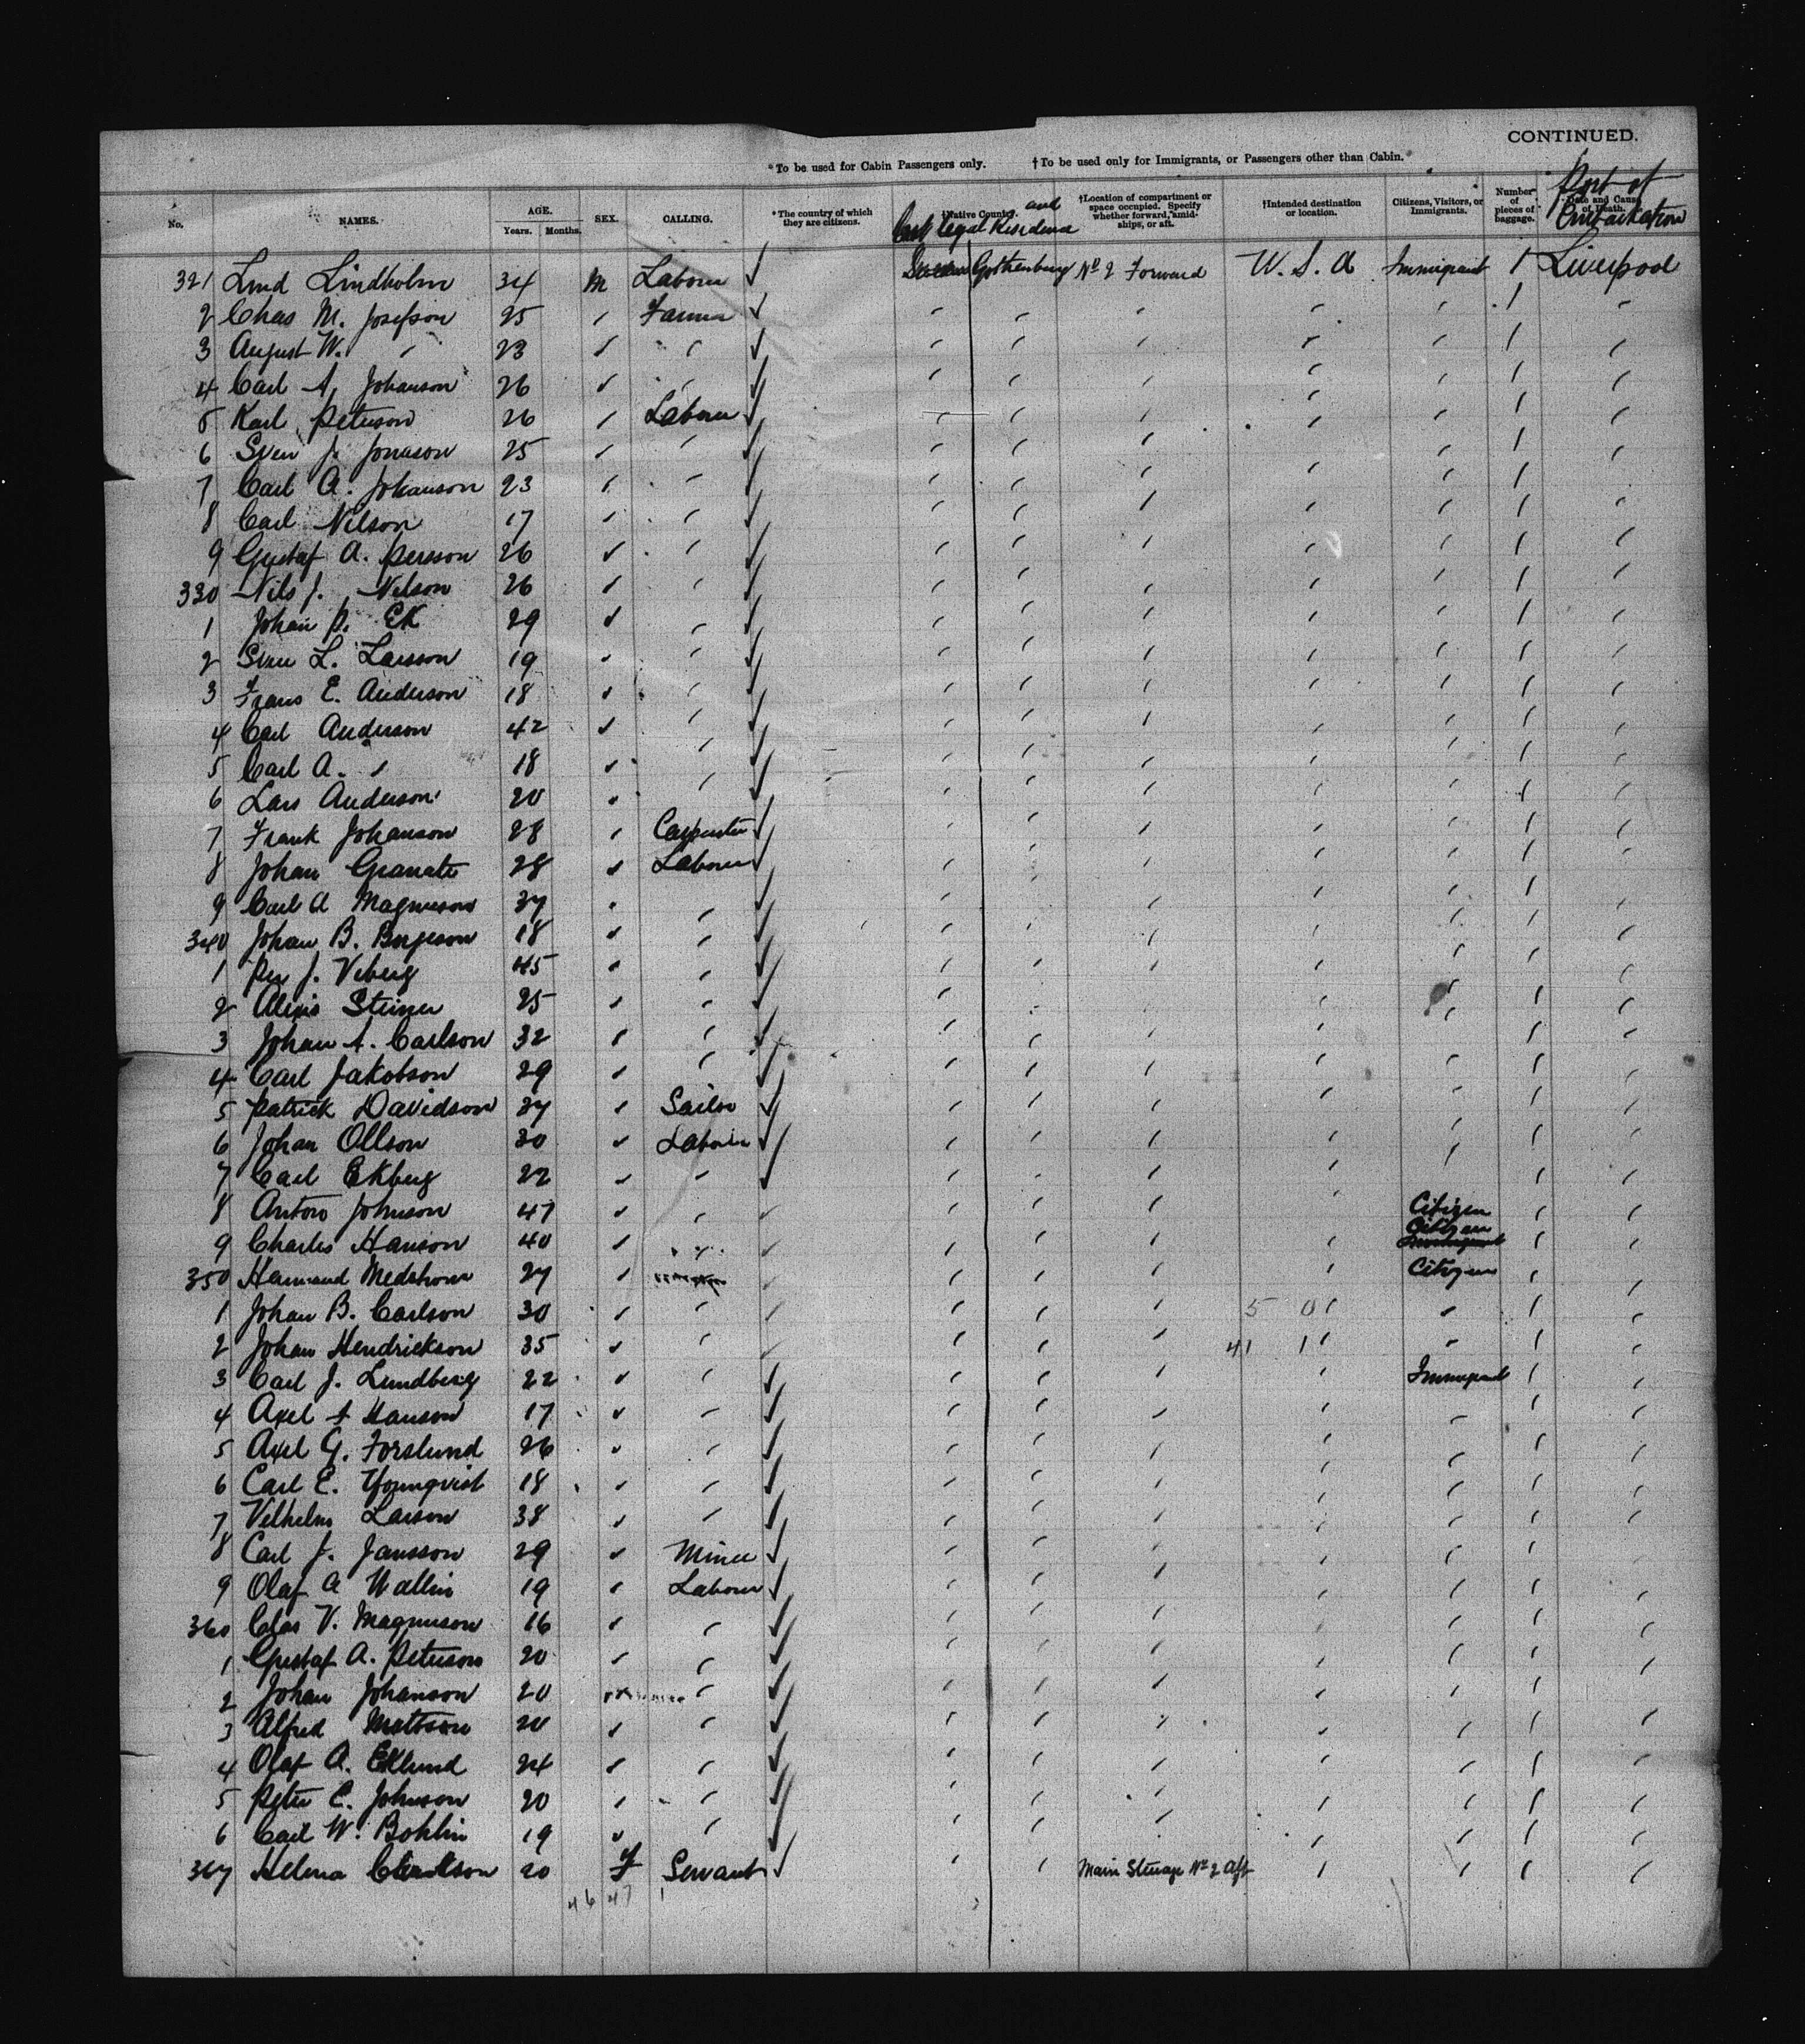 CONTINUED.
*To be used for Cabin Passengers only. †To be used only for Immigrants, or Passengers other than Cabin.
No. NAMES. AGE. Years. Months. SEX. CALLING. *The country of which they are citizens. †Native Country. and Last legal Residence †Location of compartment or space occupied. Specify whether forward, amid-ships, or aft. †Intended destination or location. Citizens, Visitors, or Immigrants. Number of pieces of baggage. Date and Cause of Death. Port of Embarkation
321 Lindholm 34 M Laborer ✓ Sweden Gothenburg No 2 Forward U. S. A Immigrant 1 Liverpool
2 Chas M. Josefson 25 " Farmer ✓ " " " " " 1 "
3 August W. " 23 " " ✓ " " " " " 1 "
4 Carl A. Johanson 26 " " ✓ " " " " " 1 "
5 Karl Peterson 26 " Laborer ✓ " " " " " 1 "
6 Sven J. Jonason 25 " " ✓ " " " " " 1 "
7 Carl A. Johanson 23 " " ✓ " " " " " 1 "
8 Carl Nilson 17 " " ✓ " " " " " 1 "
9 Gustaf A. Persson 26 " " ✓ " " " " " 1 "
330 Nils J. Nelson 26 " " ✓ " " " " " 1 "
1 Johan P. Ek 29 " " ✓ " " " " " 1 "
2 Sven L. Larsson 19 " " ✓ " " " " " 1 "
3 Frans E. Anderson 18 " " ✓ " " " " " 1 "
4 Carl Anderson 42 " " ✓ " " " " " 1 "
5 Carl A. " 18 " " ✓ " " " " " 1 "
6 Lars Anderson 20 " " ✓ " " " " " 1 "
7 Frank Johanson 28 " Carpenter ✓ " " " " " 1 "
8 Johan Granate 28 " Laborer ✓ " " " " " 1 "
9 Carl A Magnuson 37 " " ✓ " " " " " 1 "
340 Johan B. Borgeson 18 " " ✓ " " " " " 1 "
1 Per J. Viberg 45 " " ✓ " " " " " 1 "
2 Alexis Steiner 25 " " ✓ " " " " " 1 "
3 Johan A. Carlson 32 " " ✓ " " " " " 1 "
4 Carl Jakobson 29 " " ✓ " " " " " 1 "
5 Patrick Davidson 27 " Sailor ✓ " " " " " 1 "
6 Johan Ollson 30 " Laborer ✓ " " " " " 1 "
7 Carl Ekberg 22 " " ✓ " " " " " 1 "
8 Anton Johnson 47 " " ✓ " " " " Citizen 1 "
9 Charles Hanson 40 " " ✓ " " " " Citizen 1 "
350 Medstrom 27 " ✓ " " " " Citizen 1 "
1 Johan B. Carlson 30 " " ✓ " " " 5 0 " " 1 "
2 Johan Hendrickson 35 " " ✓ " " " 41 1 " " 1 "
3 Carl J. Lundberg 22 " " ✓ " " " " Immigrant 1 "
4 Axel A Hanson 17 " " ✓ " " " " " 1 "
5 Axel G. Forslund 26 " " ✓ " " " " " 1 "
6 Carl E. Younqvist 18 " " ✓ " " " " " 1 "
7 Vilhelm Larson 38 " " ✓ " " " " " 1 "
8 Carl J. Jansson 29 " Miner ✓ " " " " " 1 "
9 Olaf A Wallin 19 " Laborer ✓ " " " " " 1 "
360 Claes V. Magnuson 16 " " ✓ " " " " " 1 "
1 Gustaf A. Peterson 20 " " ✓ " " " " " 1 "
2 Johan Johanson 20 " " ✓ " " " " " 1 "
3 Alfred Mattson 20 " " ✓ " " " " " 1 "
4 Olaf A. Eklund 24 " " ✓ " " " " " 1 "
5 Peter C. Johnson 20 " " ✓ " " " " " 1 "
6 Carl W. Bohlin 19 " " ✓ " " " " " 1 "
367 Helena 20 F Servant ✓ " " Main Steerage No 2 Aft " " 1 "
46 47 1